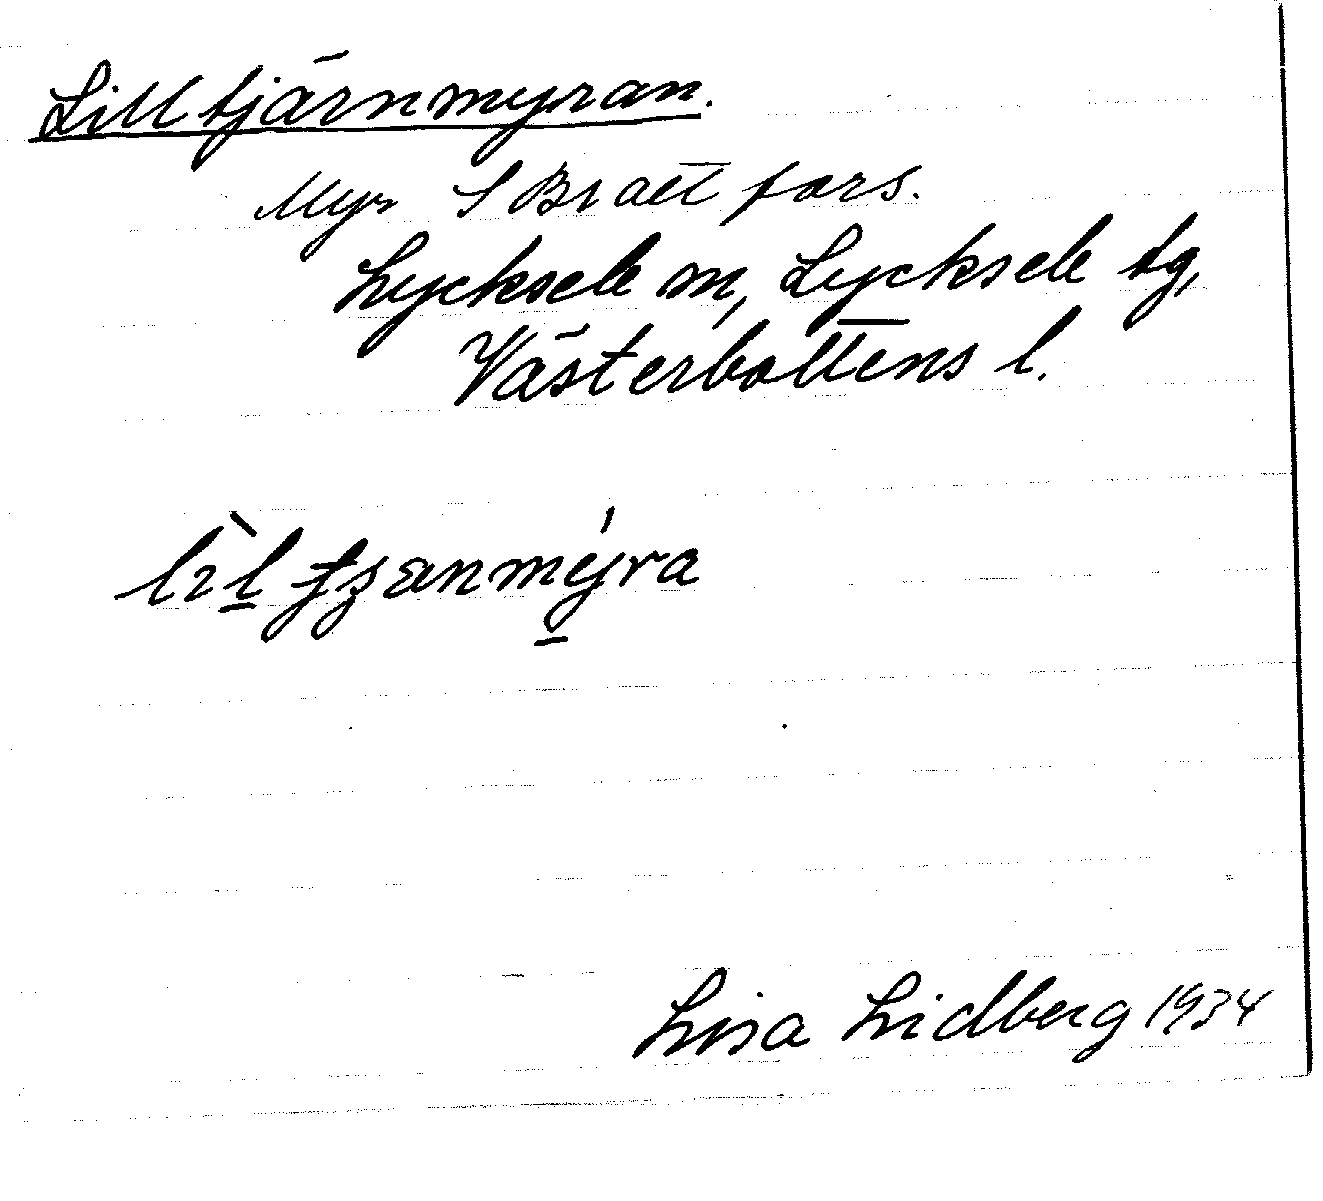 Lilltjärnmyran.
Myr S Brattfors.
Lycksele m, Lycksele tg,
Västerbottens l.
Lisa Lidberg 1934